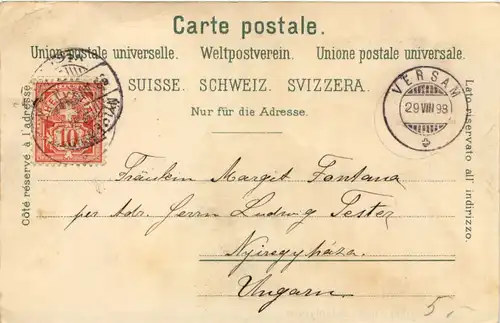 Carte postale.
Union postale universelle. Weltpostverein. Unione postale universale.
SUISSE. SCHWEIZ. SVIZZERA.
Nur für die Adresse.
Côté réservé à l'adresse.
Lato riservato all' indirizzo.
10
VERSAM
29 VIII 98
Fräulein Margit Fontana
per Adr. Herrn Ludwig Tester
Nyiregyháza.
Ungarn
5.-